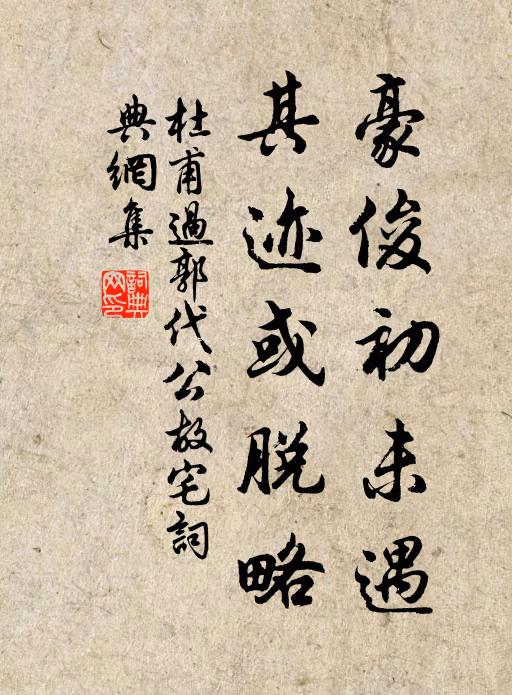 豪俊初未遇
其迹或脱略
杜甫過郭代公故宅詞
典網集
詞典網印